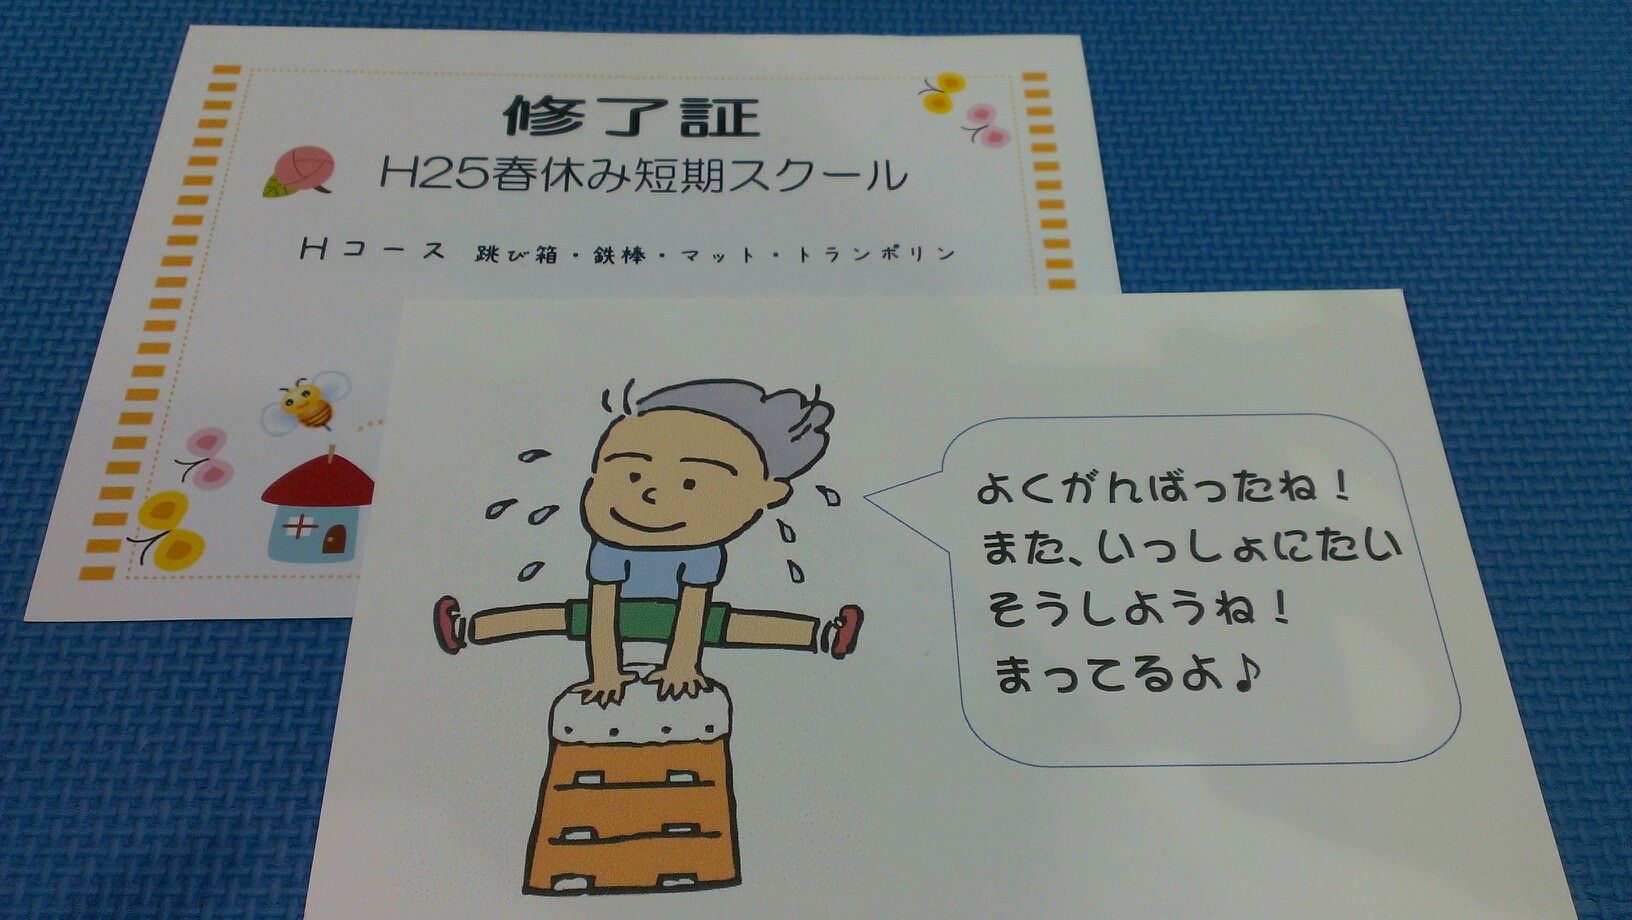 修了証
H25春休み短期スクール
Hコース 跳び箱・鉄棒・マット・トランポリン
よくがんばったね！
また、いっしょにたい
そうしようね！
まってるよ♪